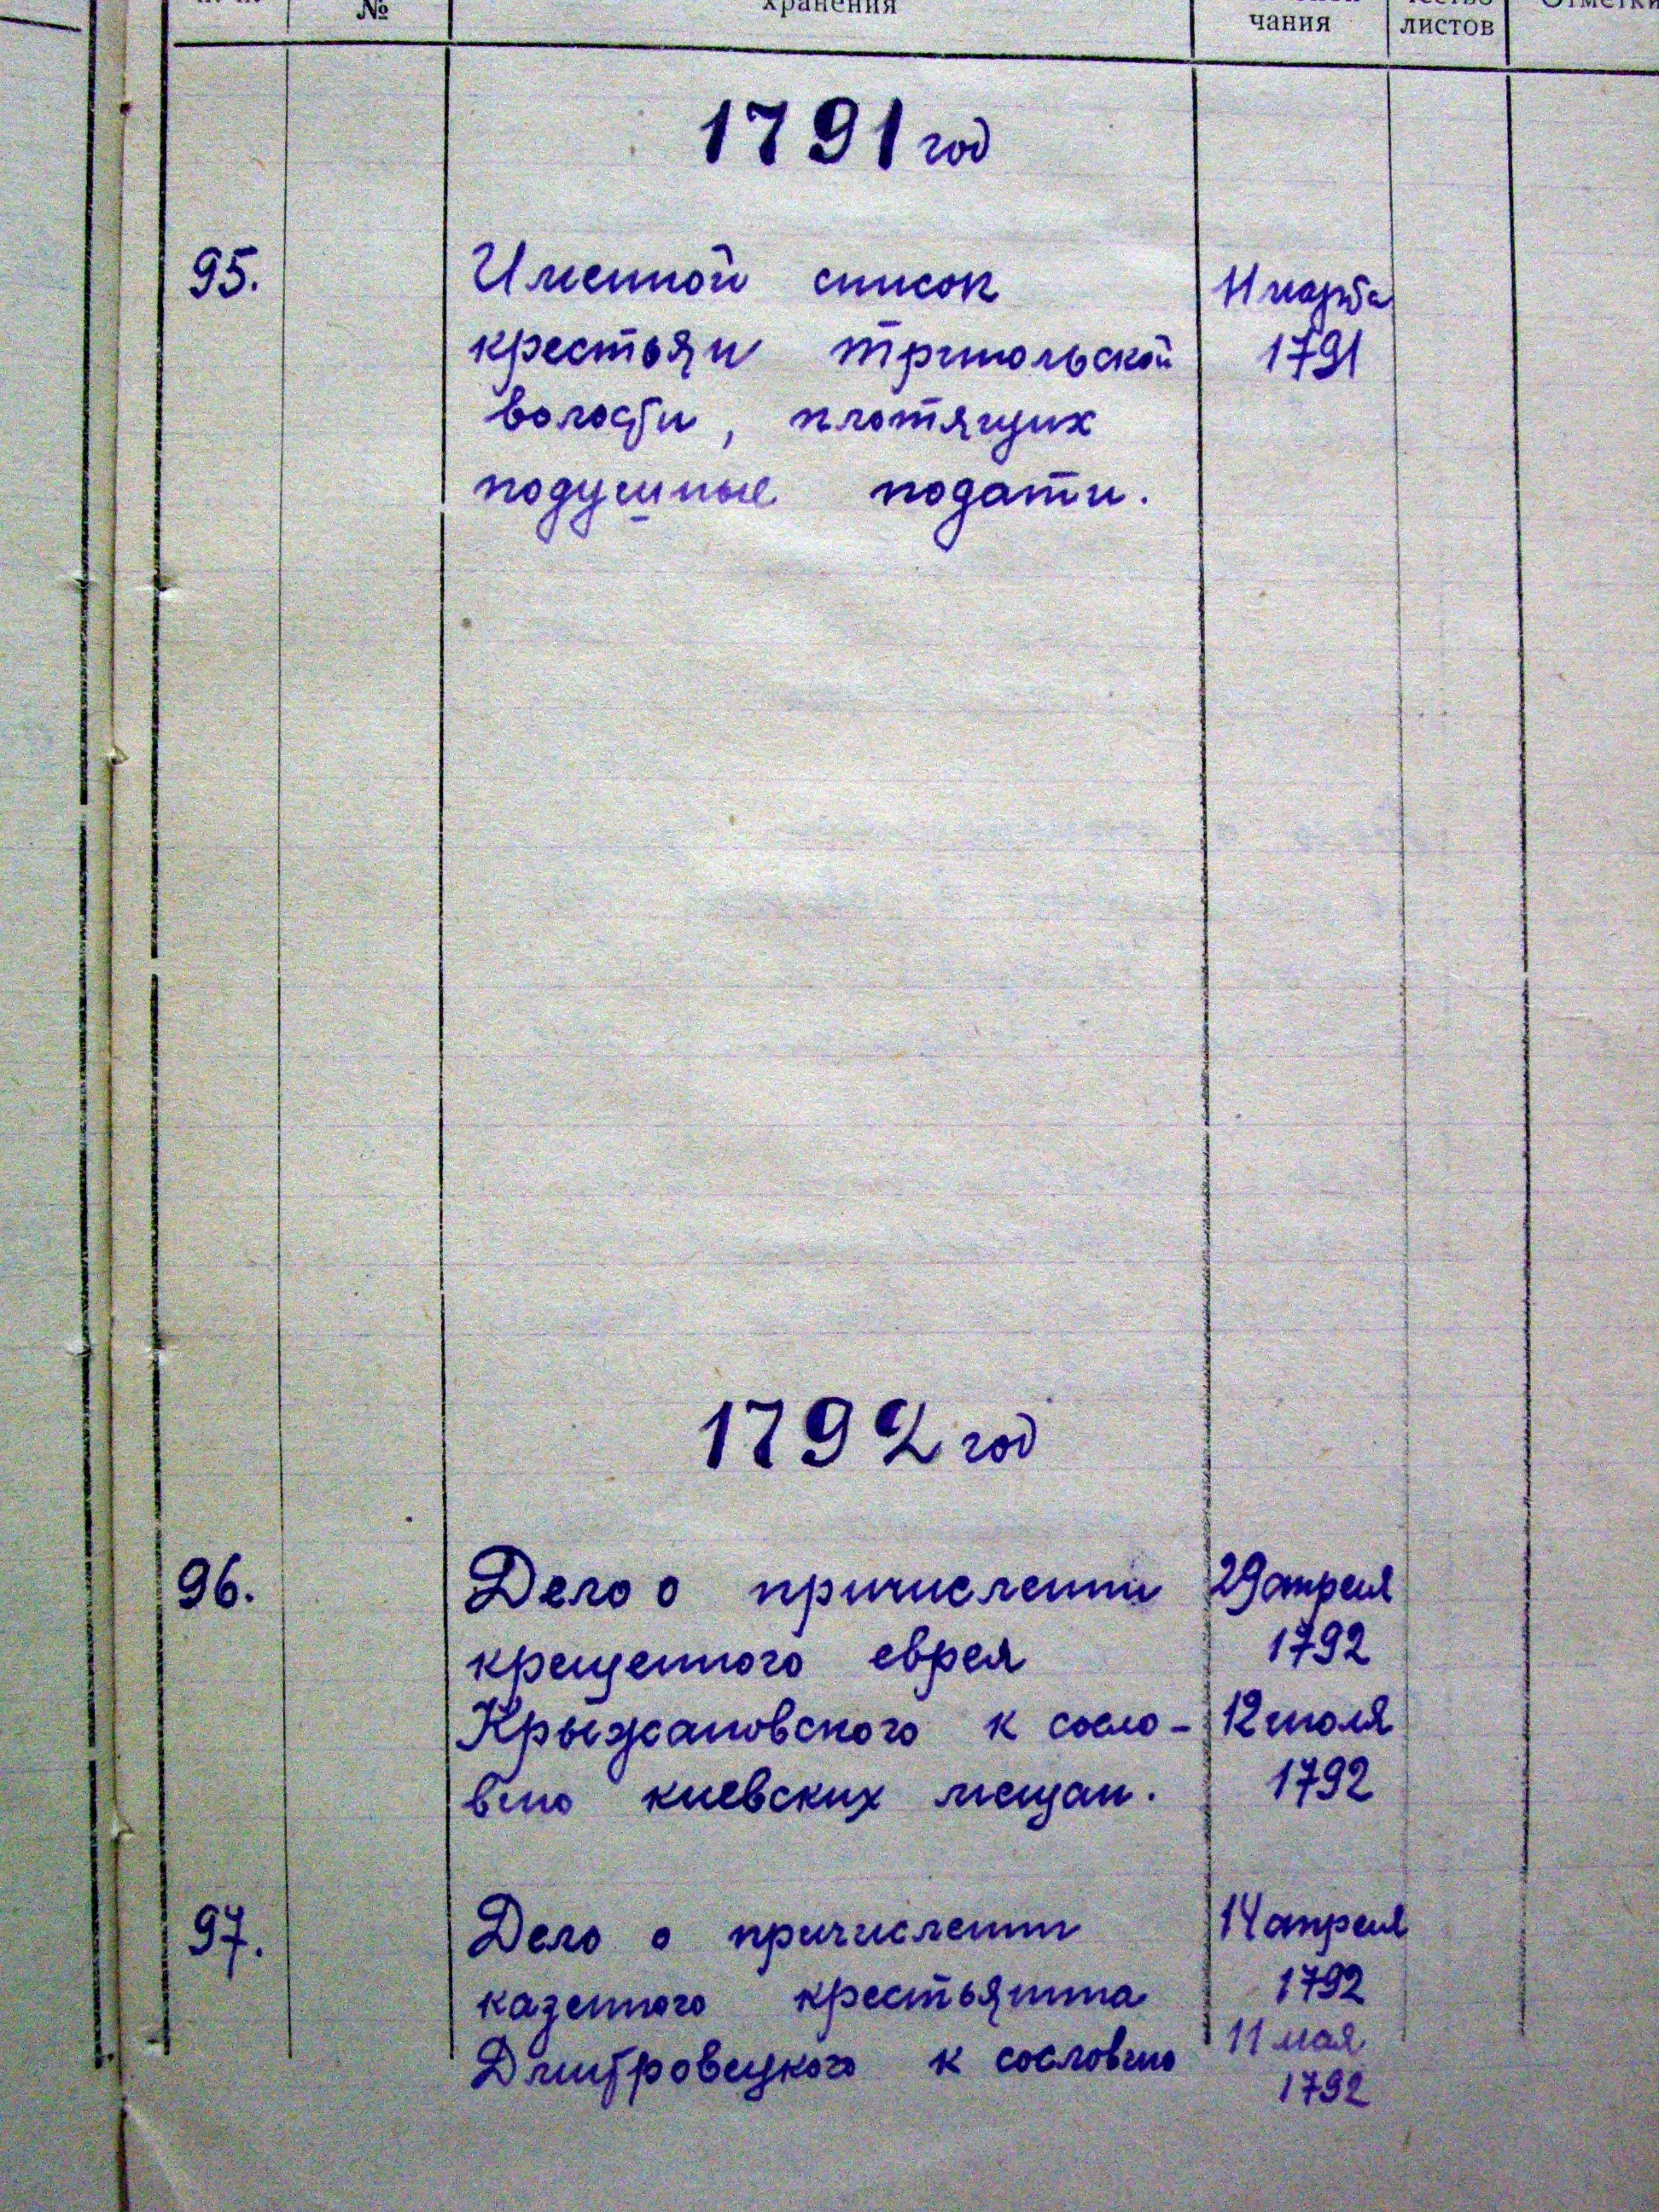 №
хранения
чания
листов
Отметки
1791 год
95.
Именной список
11 марта
крестьян Трипольской
1791
волости, платящих
подушные подати.
1792 год
96.
Дело о причислении
29 апреля
крещенного еврея
1792
Крыжановского к сосло-
12 июля
вию киевских мещан.
1792
97.
Дело о причислении
14 апреля
казенного крестьянина
1792
Дмитровецкого к сословию
11 мая
1792